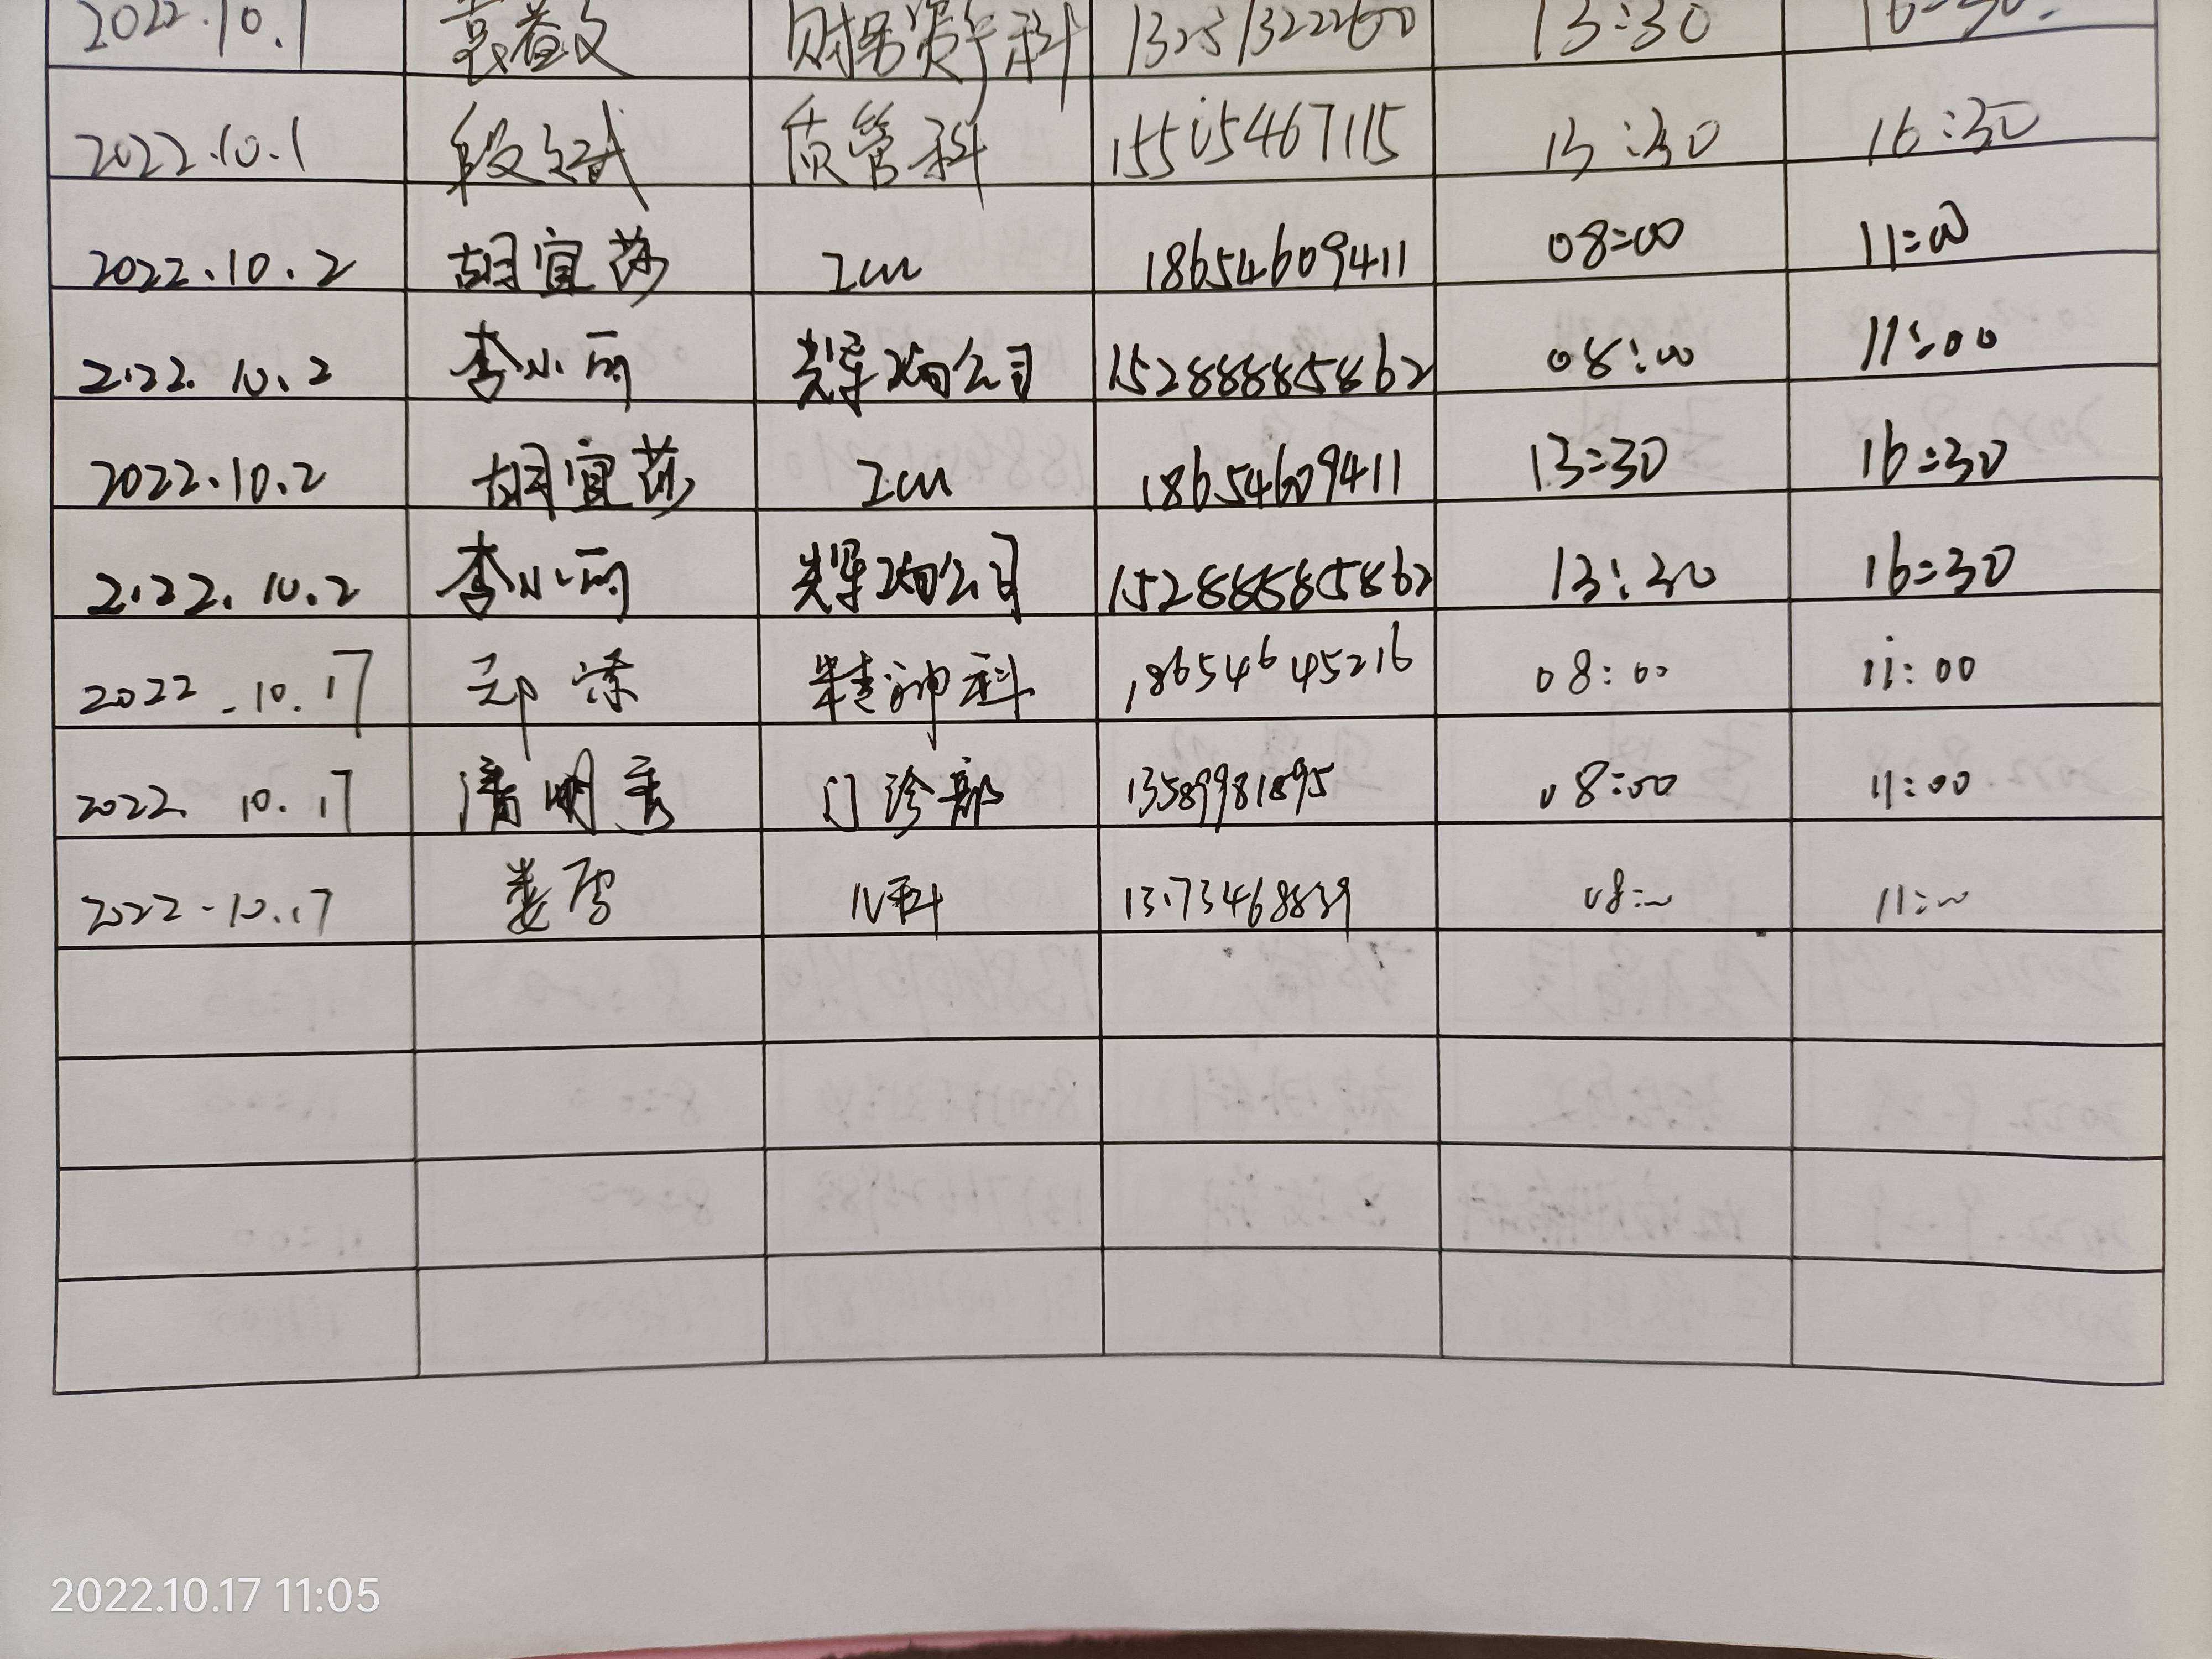 2022.10.1 袁益文 财务资产科 13251322600 13:30 16:30
2022.10.1 段文斌 质管科 15505467115 13:30 16:30
2022.10.2 胡宜莎 Icu 18654609411 08:00 11:00
2022.10.2 李小丽 公司 15288885862 08:00 11:00
2022.10.2 胡宜莎 Icu 18654609411 13:30 16:30
2022.10.2 李小丽 公司 15288885862 13:30 16:30
2022.10.17 邓 精神科 18654645216 08:00 11:00
2022.10.17 潘明秀 门诊部 13589981895 08:00 11:00
2022.10.17 娄雪 儿科 08:00 11:00
2022.10.17 11:05